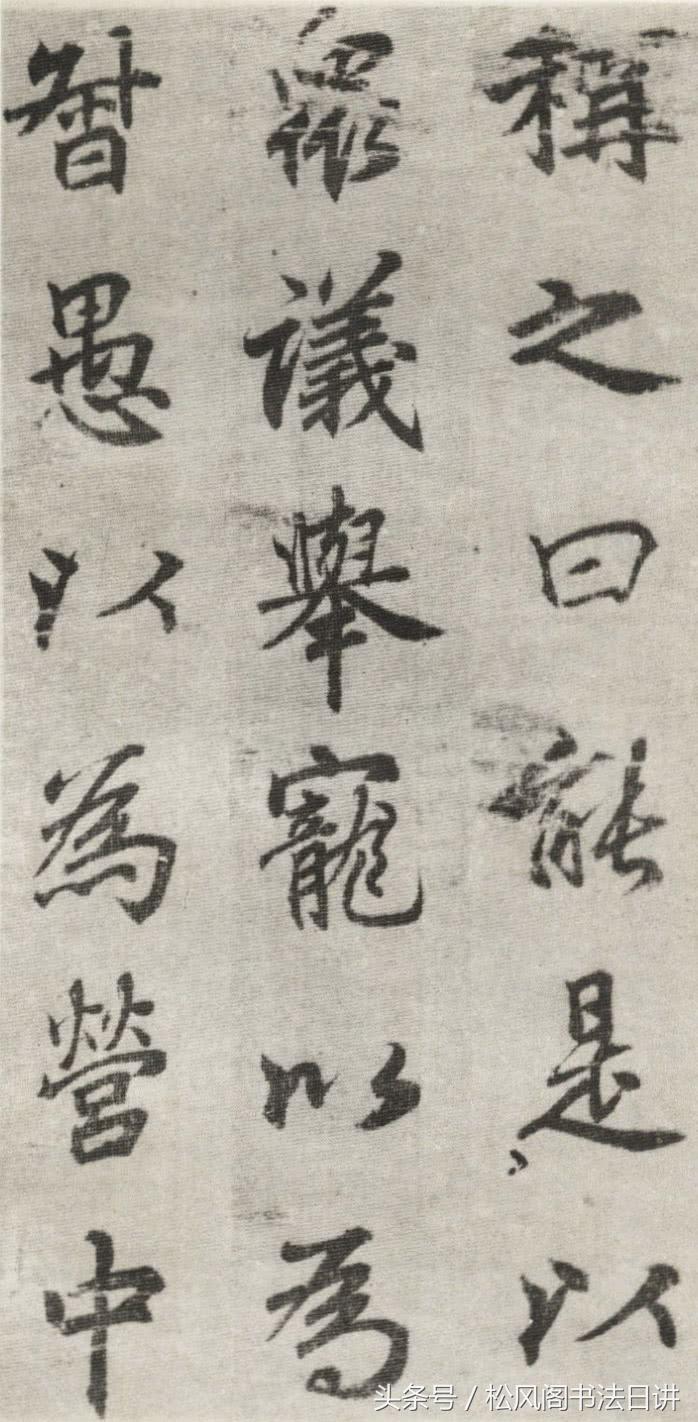 稱之曰能是以
衆議舉寵以為
督愚以為營中
头条号 / 松风阁书法日讲